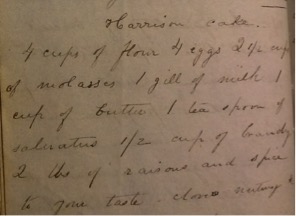 Harrison cake.
4 cups of flour 4 eggs 2 1/2 cup
of molasses 1 gill of milk 1
cup of butter 1 tea spoon of
saleratus 1/2 cup of brandy
2 lbs of raisons and spice
to your taste. clove